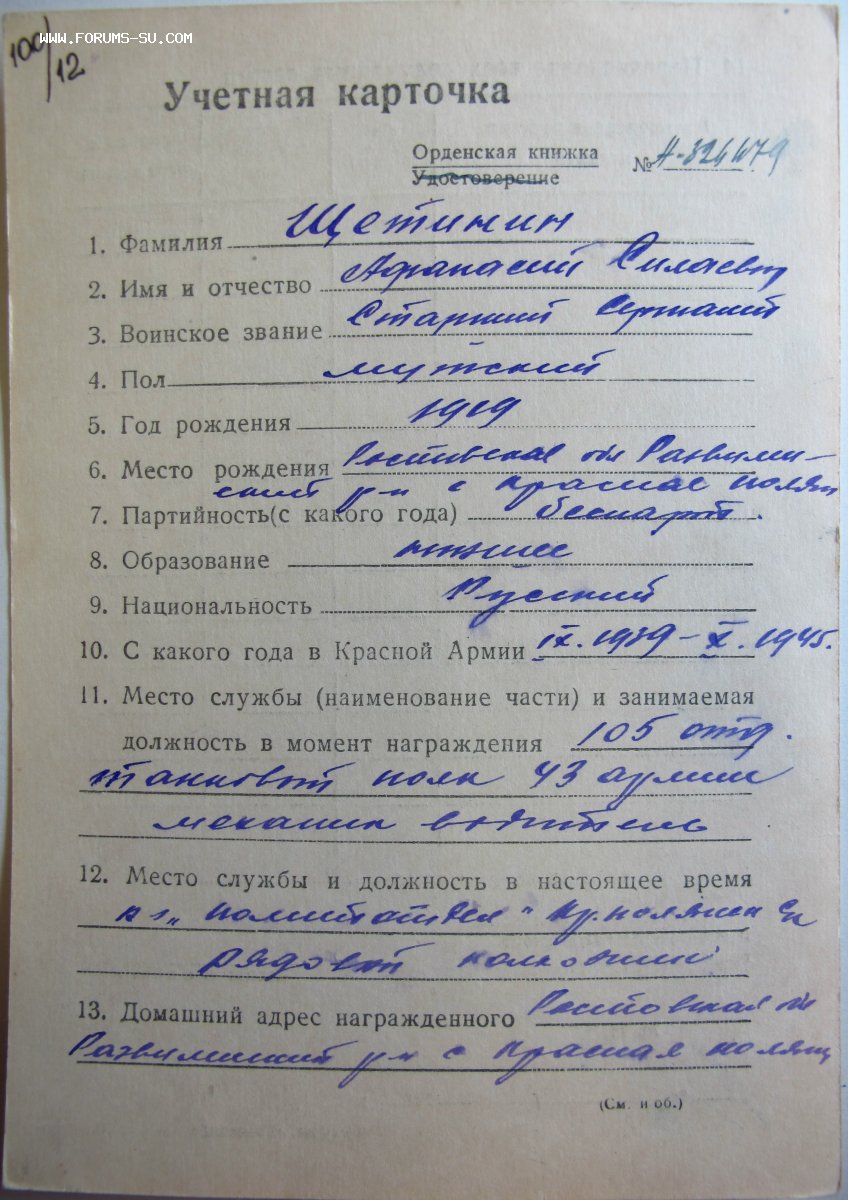 100/12
WWW.FORUMS-SU.COM
Учетная карточка
Орденская книжка
Удостоверение
№
1. Фамилия Щетинин
2. Имя и отчество Афанасий Силаевич
3. Воинское звание Старший Сержант
4. Пол мужской
5. Год рождения 1919
6. Место рождения Ростовская обл Развилен-
ский р-н с Красная поляна
7. Партийность(с какого года) беспарт.
8. Образование низшее
9. Национальность Русский
10. С какого года в Красной Армии IX.1939-X.1945.
11. Место службы (наименование части) и занимаемая
должность в момент награждения 105 отд.
танковый полк 43 армии
механик водитель
12. Место службы и должность в настоящее время
к-з „Политотдел"
рядовой колхозник
13. Домашний адрес награжденного Ростовская обл
Развиленский р-н с Красная поляна
(См. и об.)